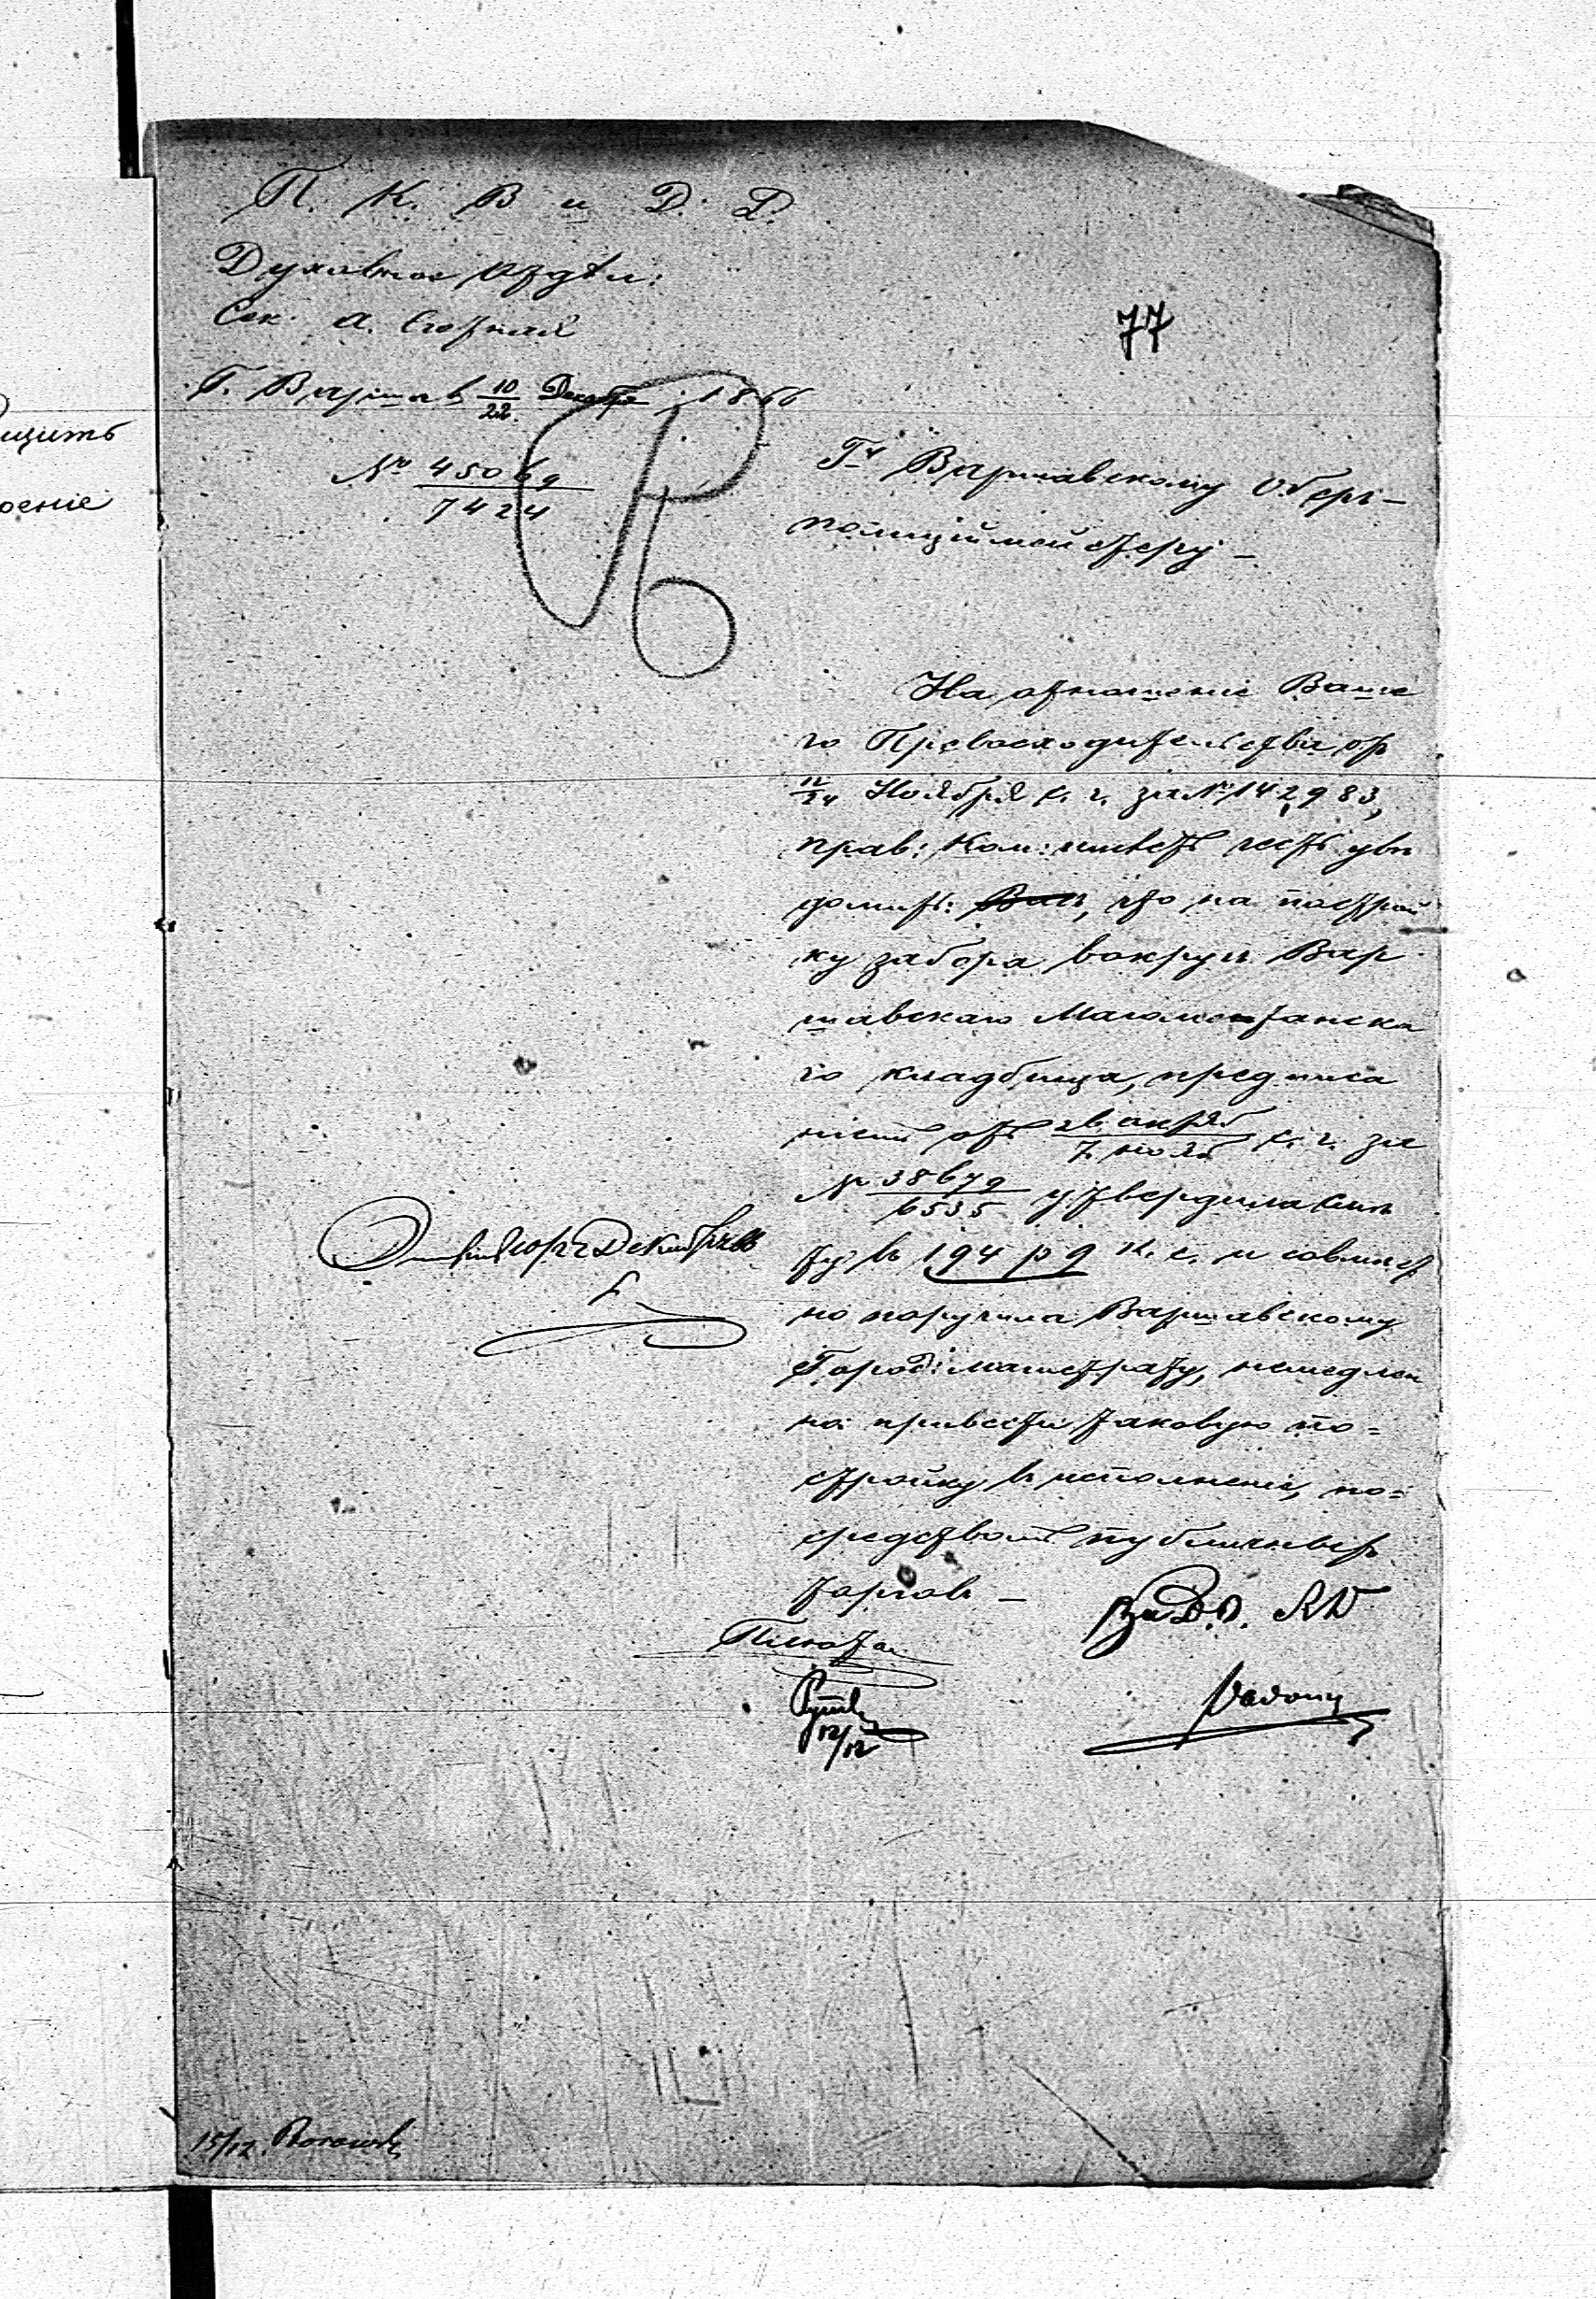 П. К. В и Д. Д.
Духовное Отдѣл:
Сек. а. Стол
77
Г. Варшава 10/22 Декабря 1866
№ 45069/7424
Гну Варшавскому Оберъ-
полиціймейстеру –
На отношеніе Ваше
го Превосходительства отъ
12/24 Ноября с. г. за № 142,983,
прав: Ком: имѣетъ честь увѣ
домить: Васъ, что на построй
ку забора вокругъ Вар
шавскаго Магометанска
го кладбища, предписа
ніемъ отъ 26 октяб/7 нояб с. г. за
№ 38679/6535 утвердила смѣ
ту въ 194 р 9 к. с. и совмѣст
но поручила Варшавскому
Город: магистрату, немедлен
но: привести таковую по=
стройку въ исполненіе, по=
средствомъ публичныхъ
торговъ –
За Д. Д.
12/12
15/12.
ицить
оеніе